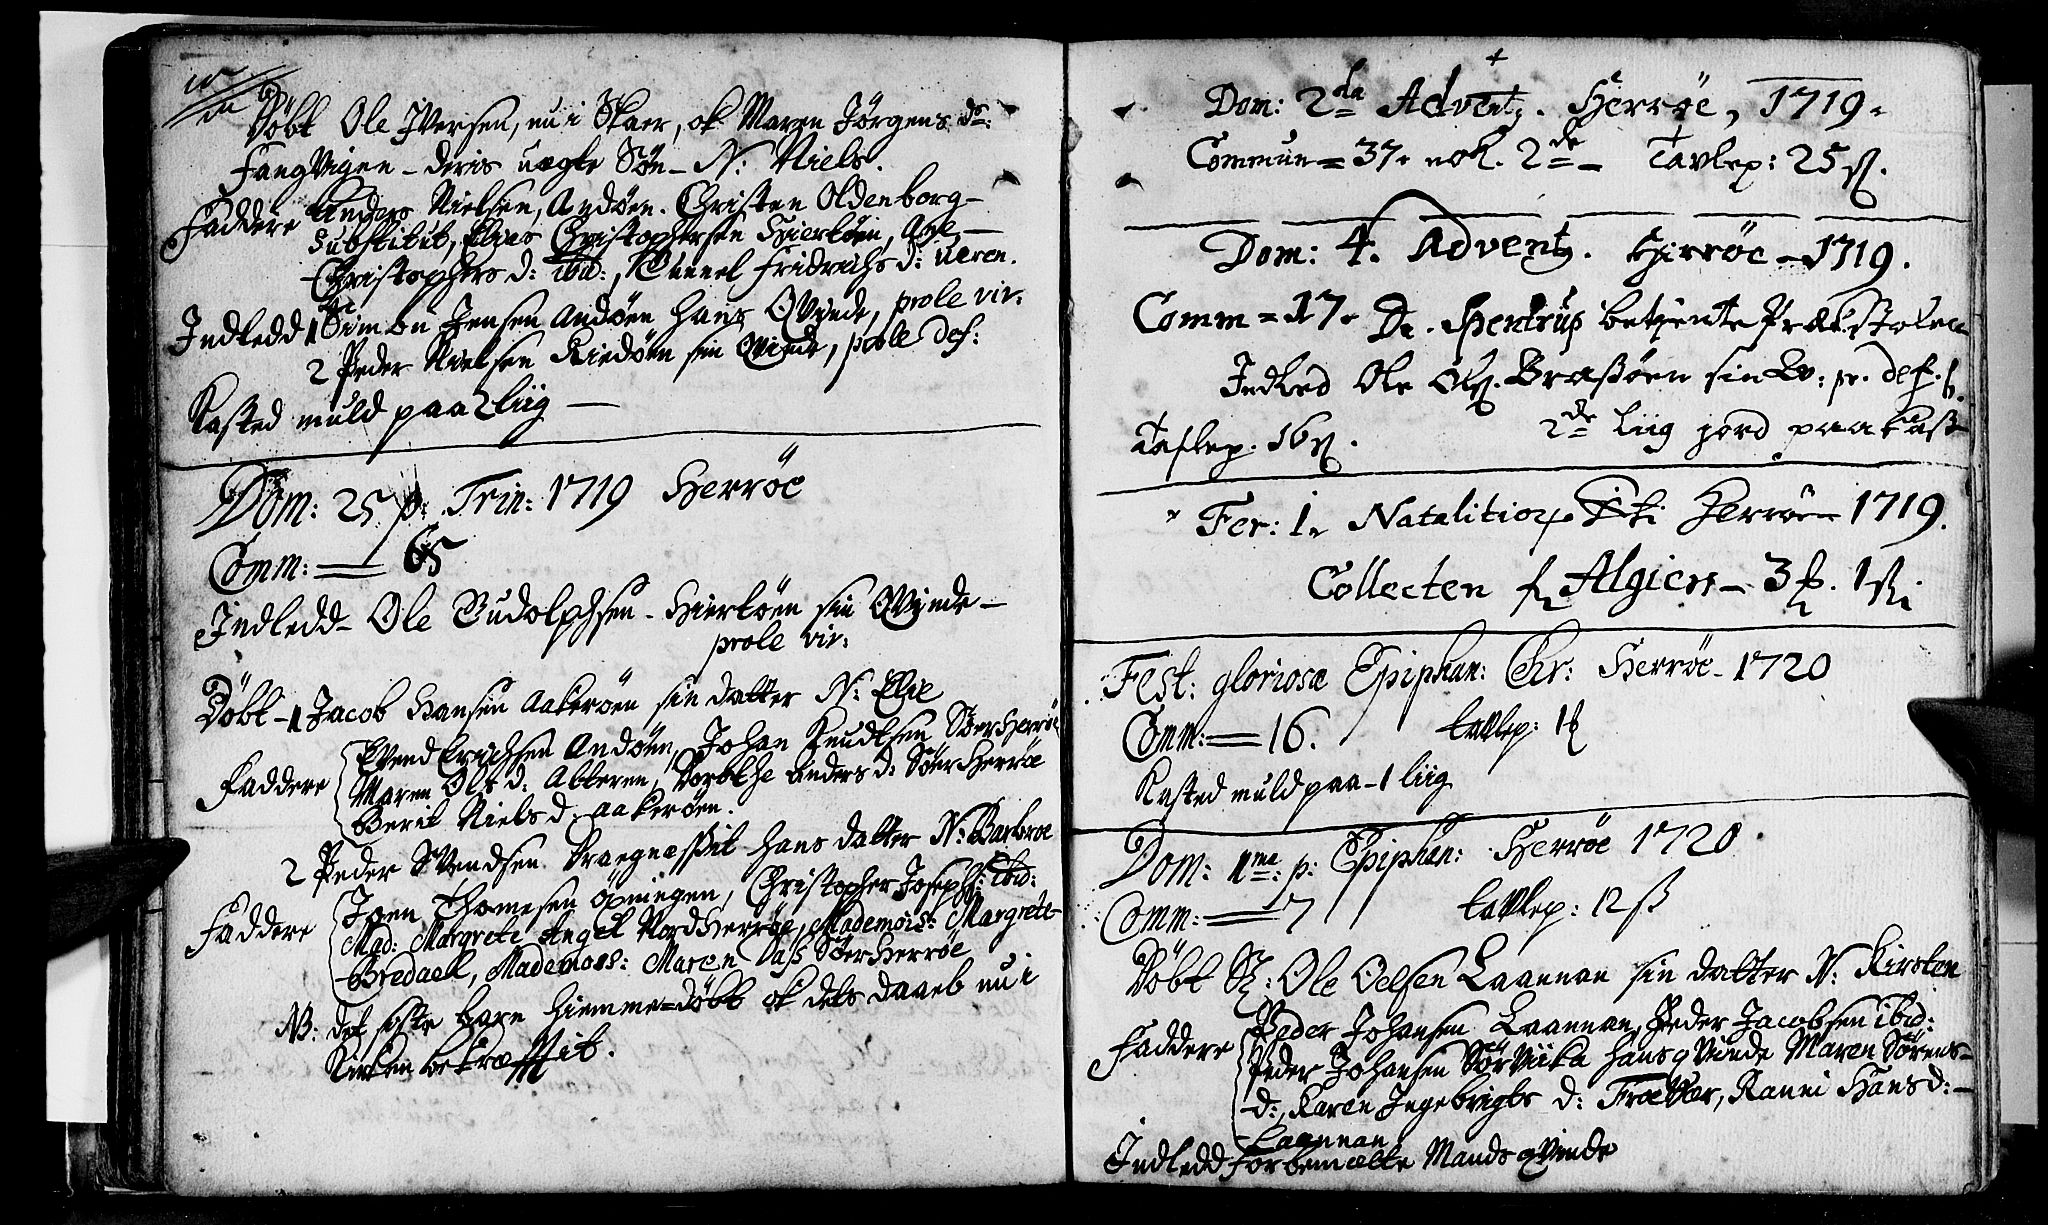 Døbt Ole Iversen, nu i Skaer, ok Maren Jørgens d:
FangVigen - deris uægte Søn - N: Niels.
Faddere Anders Nielsen, Andøen. Christen Oldenborg -
Substitut, Christophersen Hiertøen,
Christophers d: ibid:, Fridrichs d:
Indledd 1 Simon Jensen Andøen hans QVinde, prole vir:
2 Peder Nielsen sin QVinde, prole def:
Kasted muld paa 2 liig —
Dom: 25 p: Trin: 1719 Herrøe
Comm: = 65
Indledd - Ole Rudolphsen - Hiertøen sin QVinde -
prole vir:
Døbt - 1 Jacob Hansen Aakerøen sin datter N: Elie
Faddere Erichsen Andøen, Johan Knudtsen SøerHerrøe
Maren Ols d: Alteren, Dorethe Anders d: SøerHerrøe
Berit Niels d: Aakerøen.
2 Peder SVendsen hans datter N: Barbroe
Faddere Joen Thomesen Christopher Joseph: ibid:
Mad: Margrete Angel NordHerrøe, Mademois: Margrete
Bredaell, Mademois: Maren Dass SøerHerrøe
NB: det siste barn hiemme=døbt ok dets daab nu i
Kirken bekræfftit.
Dom: 2da Advent. Herrøe, 1719.
Commun = 37. 2de - Tavlep: 25 ß.
Dom: 4. Advent. Herrøe - 1719.
Comm = 17. betjente Prækstolen
Indled Ole Ols. Brasøen sin Qv: pr. def.
Taflep. 16 ß. 2de Liig jord paakast
Fer: 1. Natalitior Xsti Herrøe - 1719.
Collecten Algiers - 3 1 ß.
Fest: gloriosæ Epiphan: Chr: Herrøe - 1720
Comm: = 16. tavlep: 1
Kasted muld paa - 1 liig
Dom: 1ma: p: Epiphan: Herrøe 1720
Comm: = 7 tavlep: 12 ß
Døbt Ole Oelsen Laannan sin datter N: Kirsten
Faddere Peder Johansen Laannan, Peder Jacobsen ibid:
Peder Johansen SørViika hans qVinde Maren Sørens-
d:, Karen Ingebrigts d: Hans d: -
Laannan
Indledd forbemælte Mands qVinde